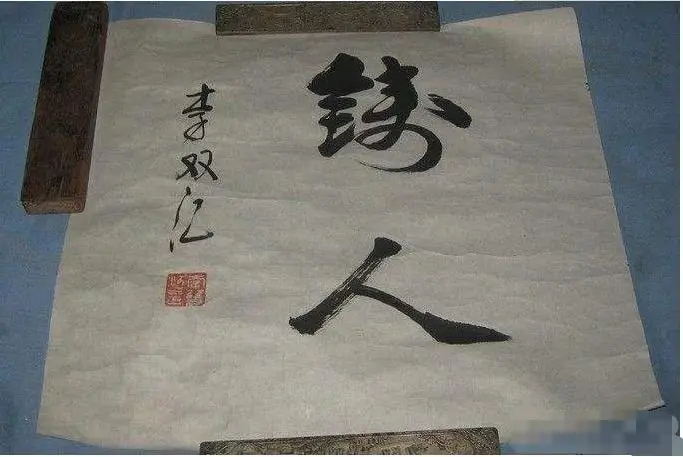 鋳人
李双江